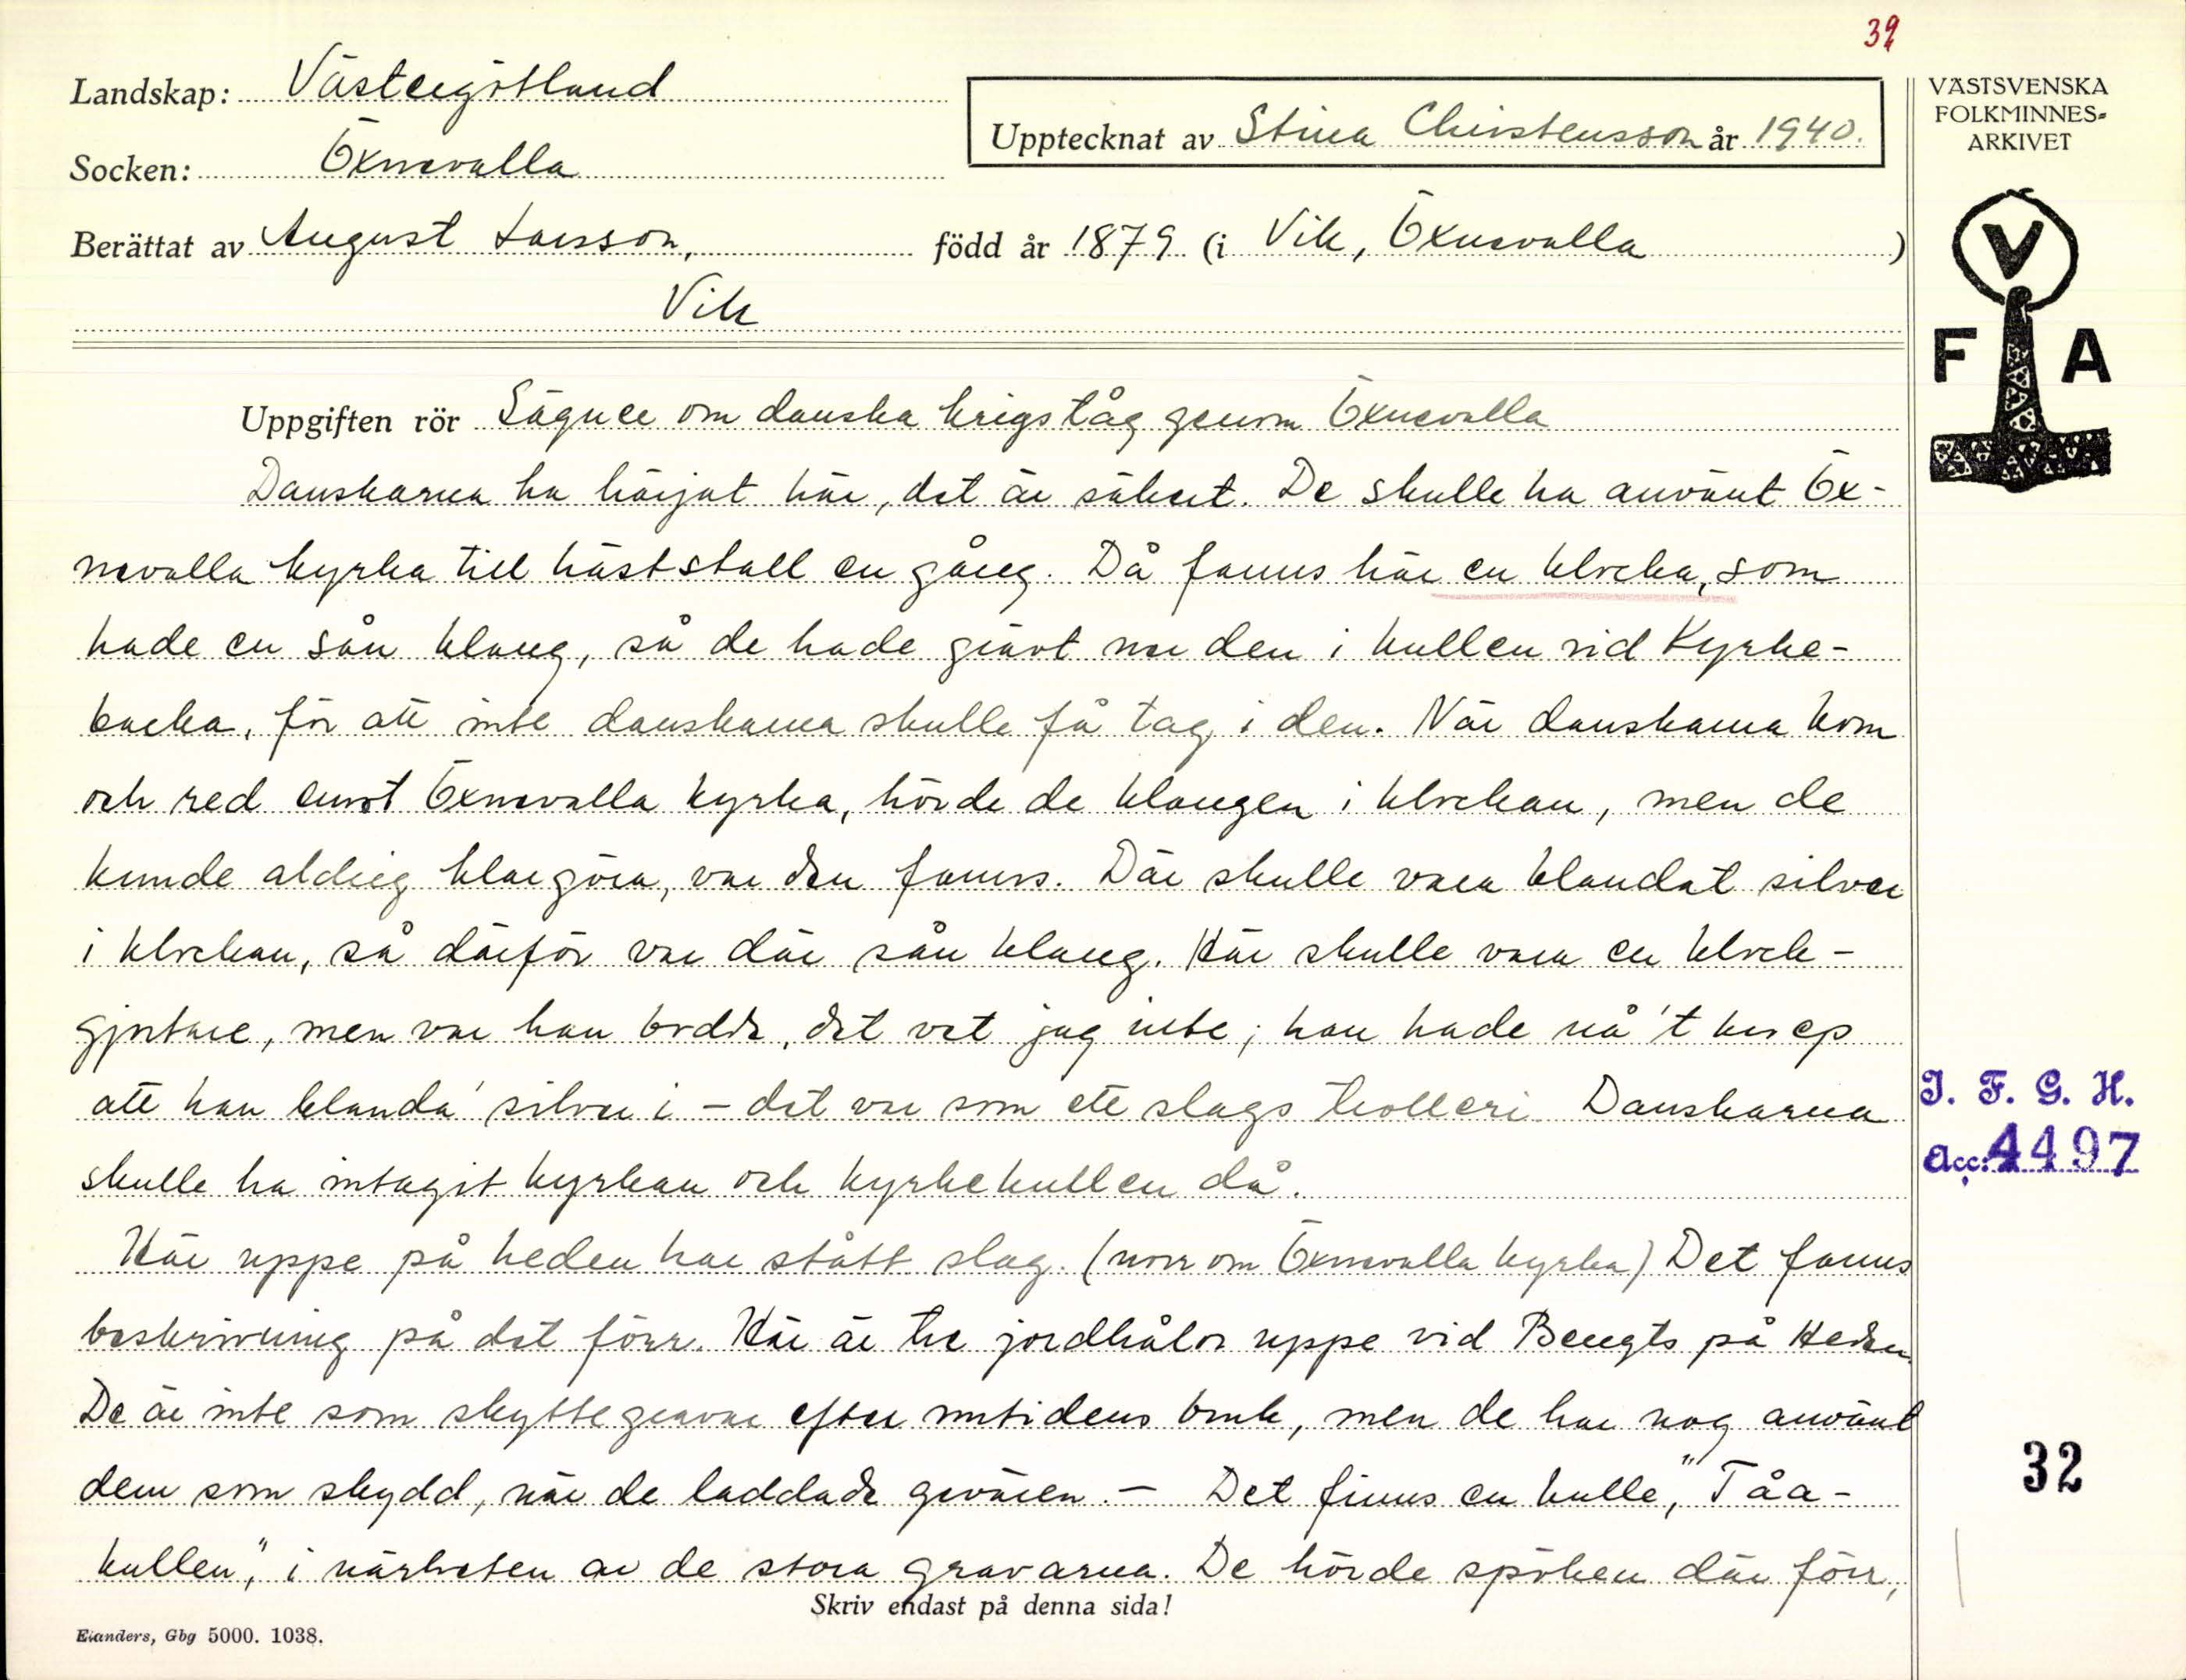 39
Landskap: Västergötland
Socken: Öxnevalla
Upptecknat av Stina Christensson år 1940.
VÄSTSVENSKA
FOLKMINNES-
ARKIVET
Berättat av August Larsson, född år 1879 (i Vik, Öxnevalla)
Vik
V
F A
Uppgiften rör Sägner om danska krigståg genom Öxnevalla
Danskarna ha härjat här, det är säkert. De skulle ha använt Öx-
nevalla kyrka till häststall en gång. Då fanns här en klocka, som
hade en sån klang, så de hade grävt ner den i kullen vid Kyrke-
backa, för att inte danskarna skulle få tag i den. När danskarna kom
och red emot Öxnevalla kyrka, hörde de klangen i klockan, men de
kunde aldrig klargöra, var den fanns. Där skulle vara blandat silver
i klockan, så därför var där sån klang. Här skulle vara en klock-
gjutare, men var han bodde, det vet jag inte; han hade nå't knep
att han blanda' silver i - det var som ett slags trolleri Danskarna
skulle ha intagit kyrkan och kyrkekullen då.
Här uppe på heden har stått slag. (norr om Öxnevalla kyrka) Det fanns
beskrivning på det förr. Här är tre jordhålor uppe vid Bengts på Heden.
De är inte som skyttegravar efter nutidens bruk, men de har nog använt
dem som skydd, när de laddade gevären. - Det finns en kulle, "Tåa-
kullen", i närheten av de stora gravarna. De hörde spöken där förr,
J. F. G. H.
Acc: 4497
32
Skriv endast på denna sida!
Elanders, Gbg 5000. 1038.